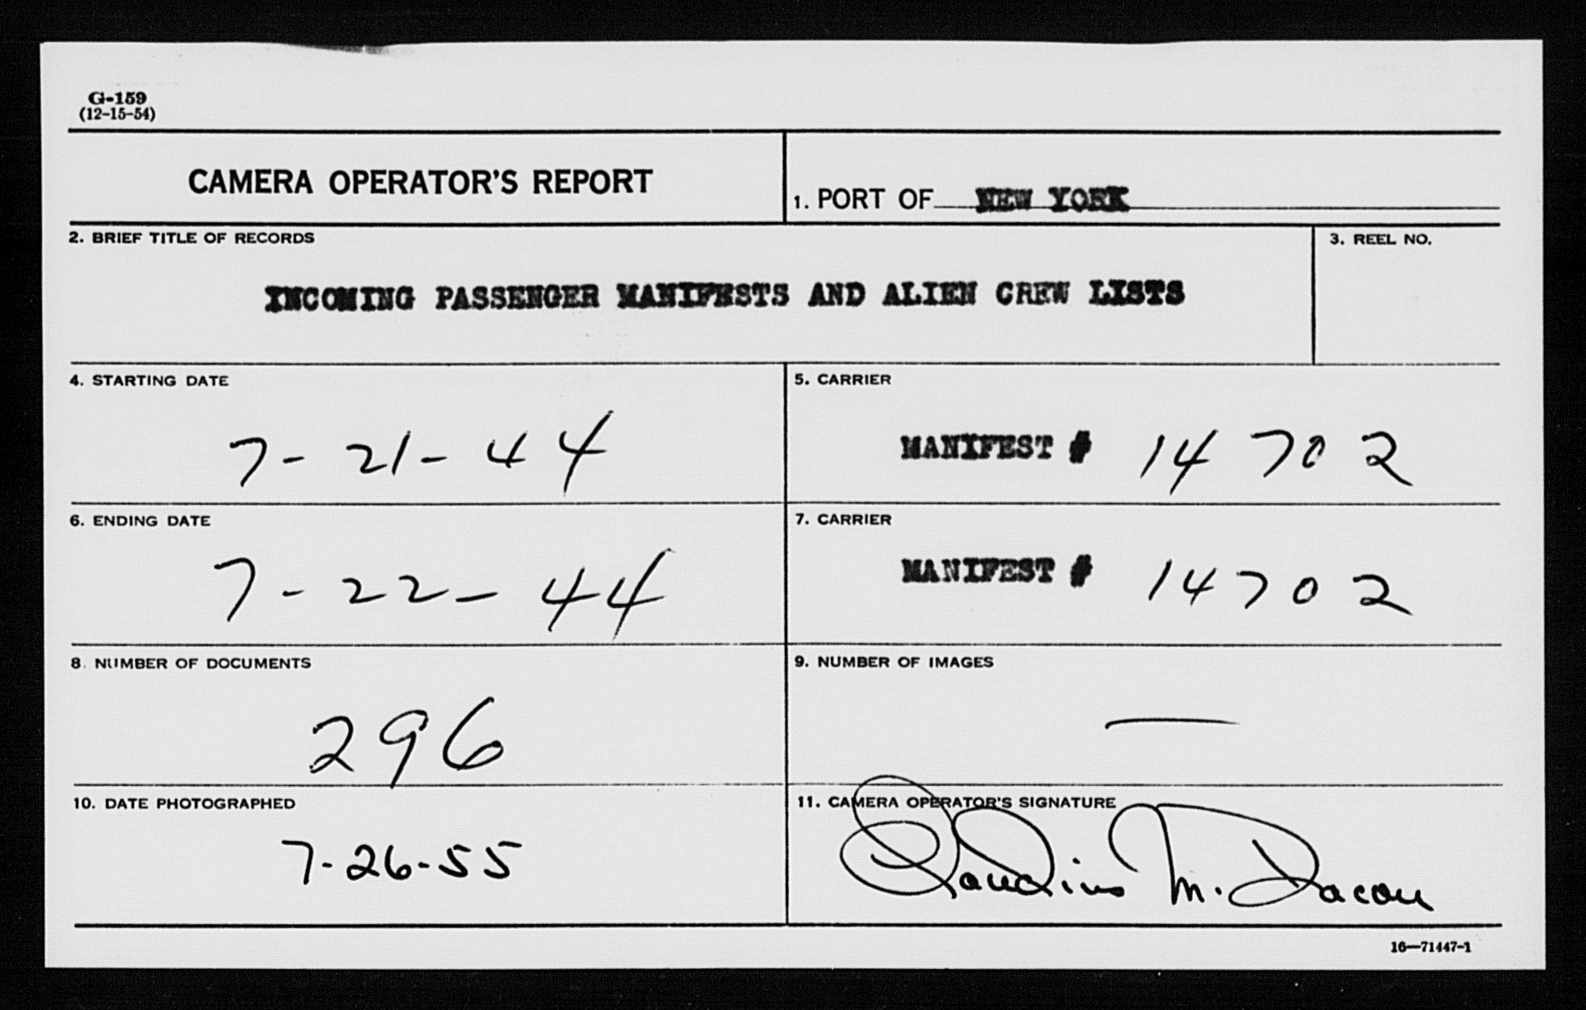 G-159
(12-15-54)
CAMERA OPERATOR'S REPORT
1. PORT OF NEW YORK
2. BRIEF TITLE OF RECORDS
3. REEL NO.
INCOMING PASSENGER MANIFESTS AND ALIEN CREW LISTS
4. STARTING DATE
5. CARRIER
7-21-44
MANIFEST # 14702
6. ENDING DATE
7. CARRIER
7-22-44
MANIFEST # 14702
8. NUMBER OF DOCUMENTS
9. NUMBER OF IMAGES
296
—
10. DATE PHOTOGRAPHED
11. CAMERA OPERATOR'S SIGNATURE
7-26-55
Claudius M. Dacon
16—71447-1